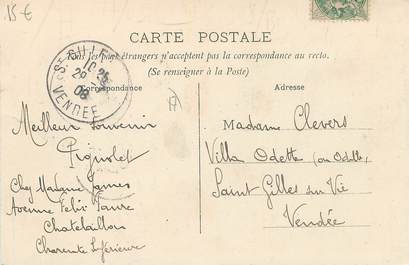 15 €
CARTE POSTALE
Tous les pays étrangers n'acceptent pas la correspondance au recto.
(Se renseigner à la Poste)
Correspondance
Adresse
ST GILLES
VENDÉE
08
Meilleur souvenir
Pignolet
Chez Madame James
Avenue Felix Faure
Chatelaillon
Charente Inférieure
Madame Clevers
Villa Odette (ou Odette)
Saint Gilles sur Vie
Vendée